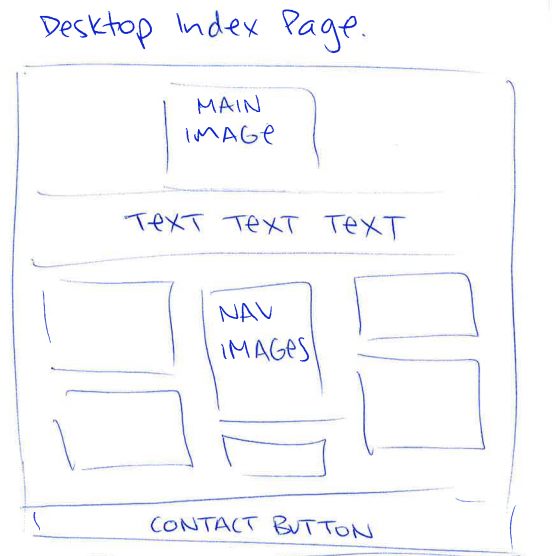 Desktop Index Page.
MAIN
IMAGE
TEXT TEXT TEXT
NAV
IMAGES
CONTACT BUTTON